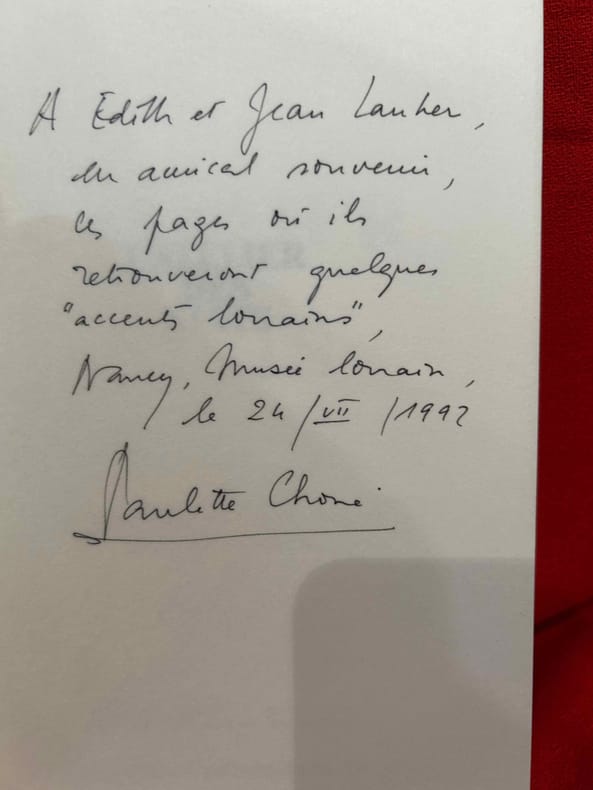 A Edith et Jean Lauher,
en amical souvenir,
ces pages où ils
retrouveront quelques
"accents lorrains",
Nancy, Musée lorrain,
le 24/VII/1992
Paulette Choné